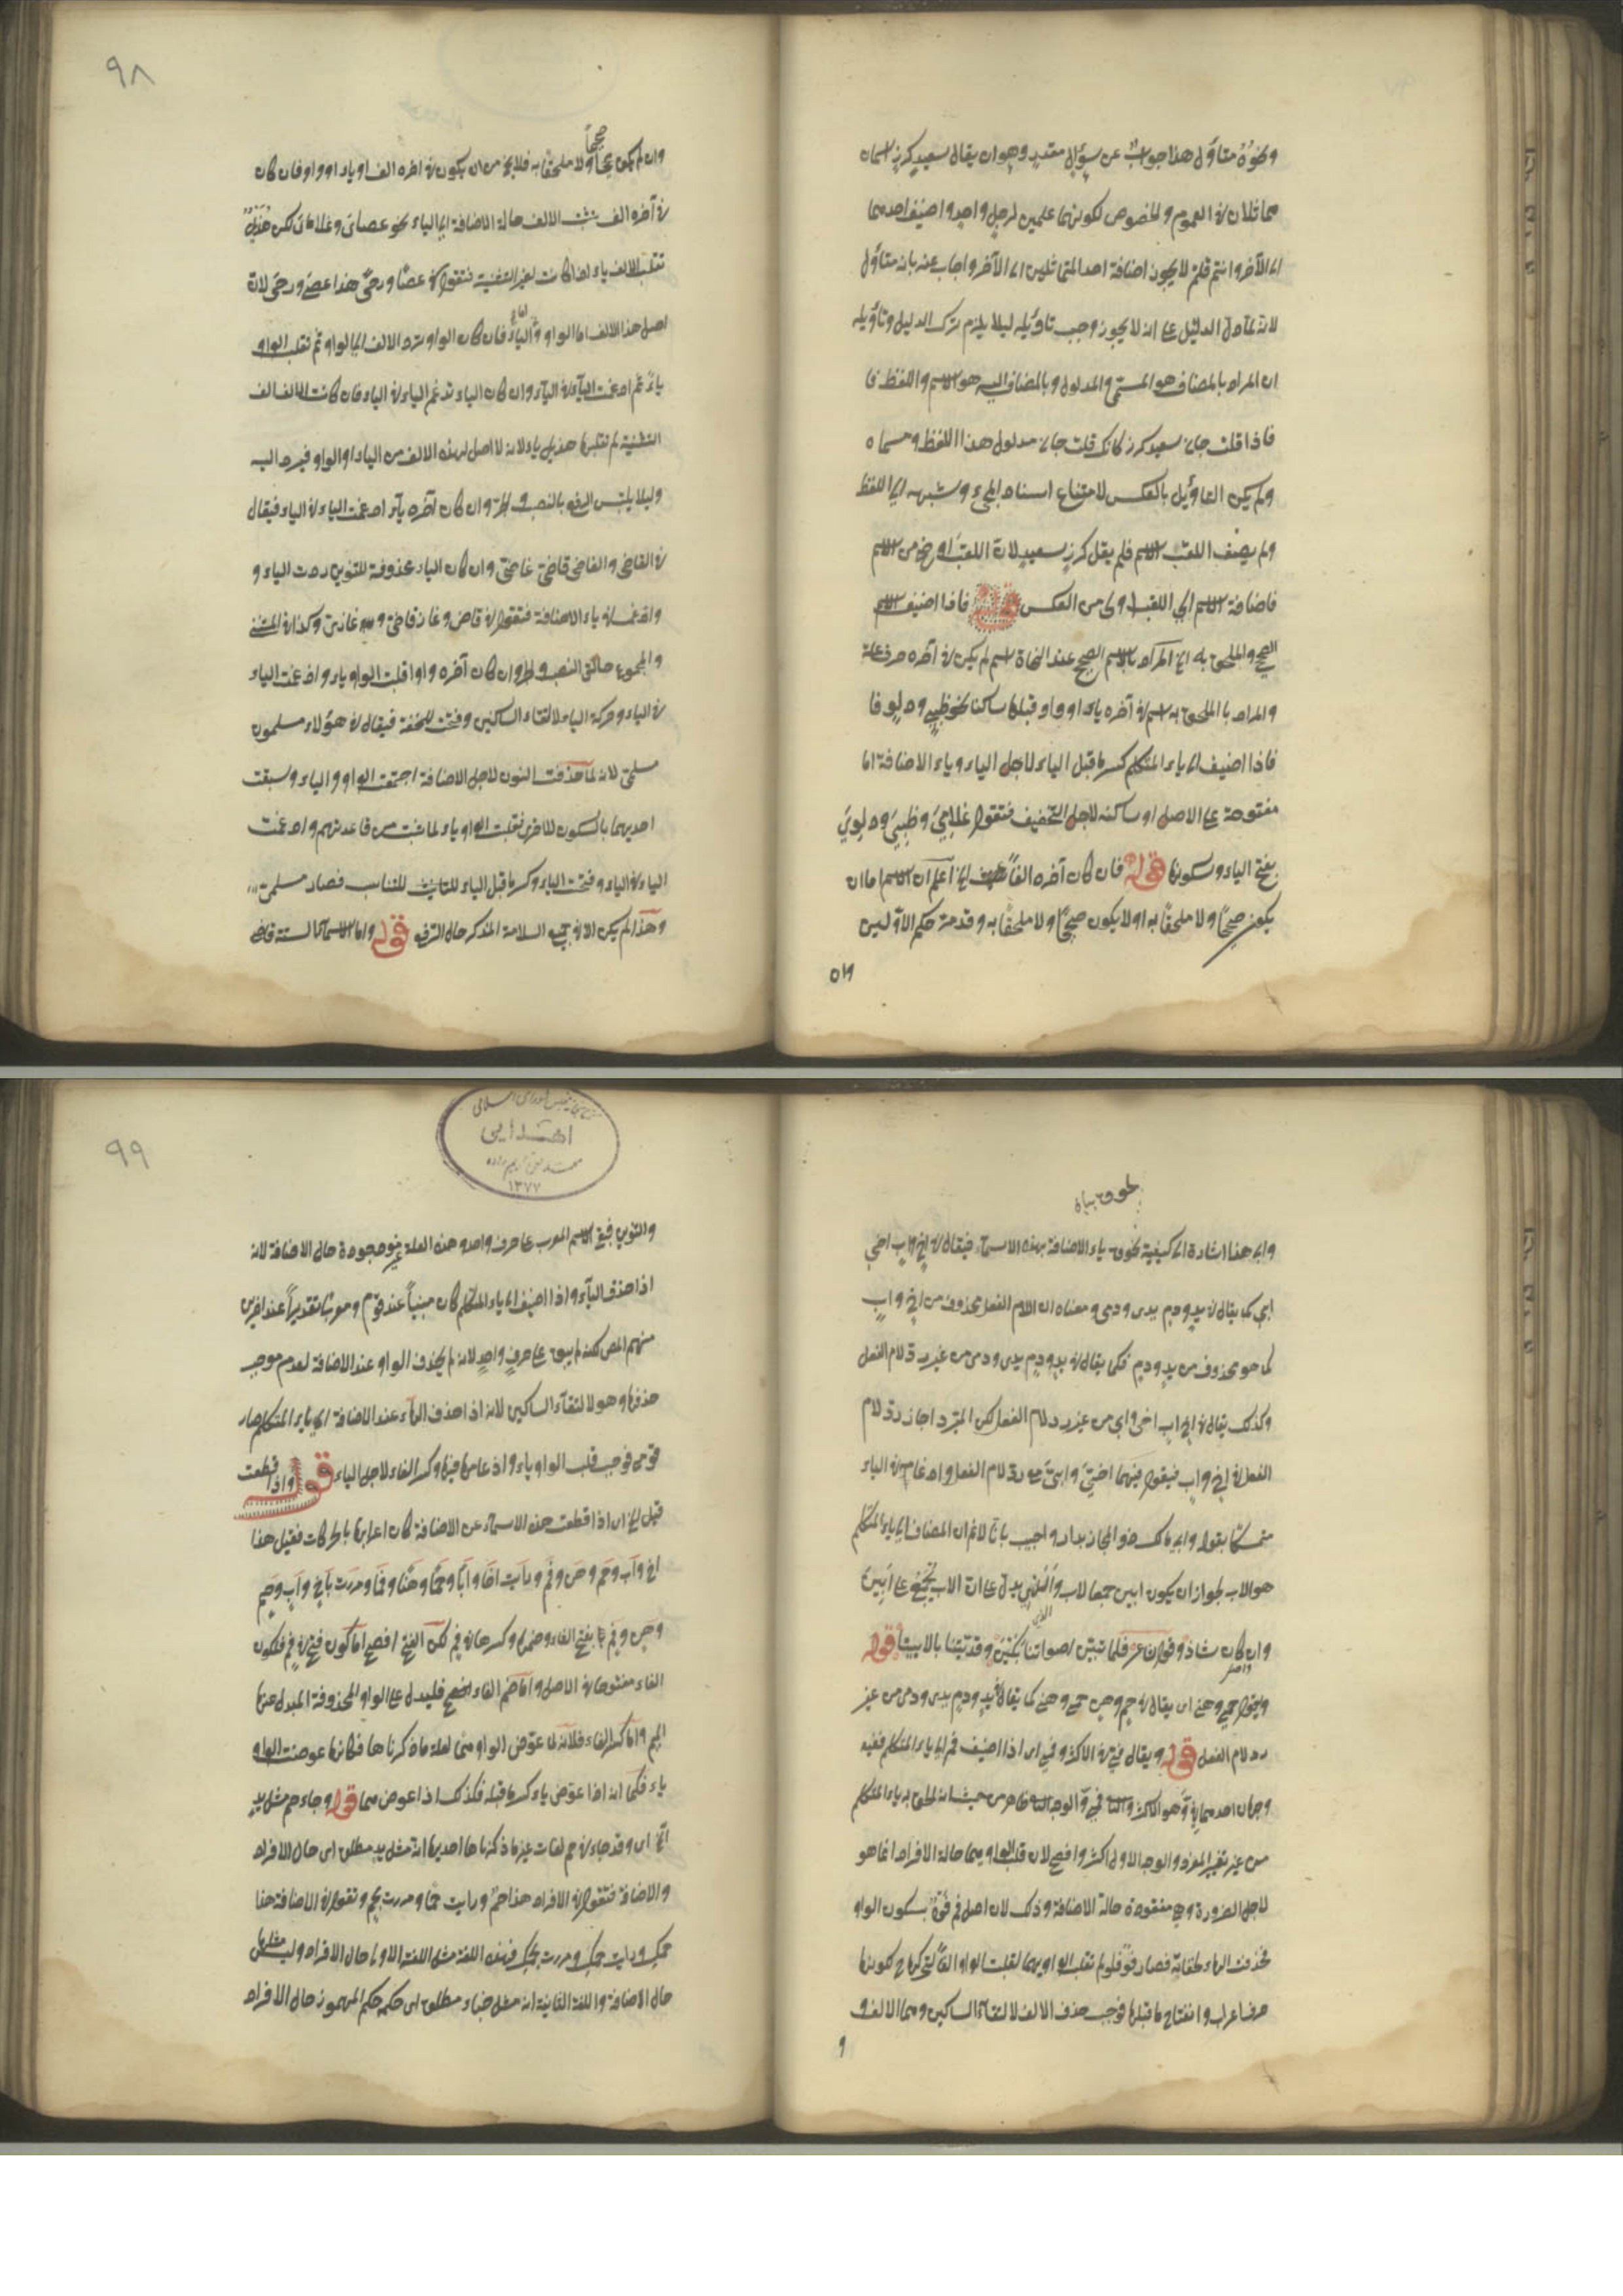 ونحوه متأول هذا جواب عن سؤال مقدر وهو ان يقال سعيد كرز اسمان
مماثلان في العموم والخصوص لكونهما علمين لرجل واحد واضيف احدهما
الى الآخر وانتم قلتم لا يجوز اضافة احد المتماثلين الى الآخر واجاب عنه بانه متأول
لانه لما دل الدليل على انه لا يجوز وجب تأويله ليلا يلزم ترك الدليل وتأويله
ان المراد بالمضاف هو المسمى والمدلول وبالمضاف اليه هو الاسم واللفظ فا
فاذا قلت جاءني سعيد كرز كانك قلت جاءني مدلول هذا اللفظ ومسماه
ولم يكن التأويل بالعكس لامتناع اسناد المجيء وشبهه الى اللفظ
ولم يضف اللقب الاسم فلم يقل كرز سعيد لان اللقب اوضح من الاسم
فاضافة الاسم الى اللقب اولى من العكس قوله فاذا اضيف الاسم
الصحيح والملحق به الخ المراد بالاسم الصحيح عند النحاة اسم لم يكن في آخره حرف علة
والمراد بالملحق به اسم في آخره ياء او واو وقبلها ساكن نحو ظبي ودلو فا
فاذا اضيف الى ياء المتكلم كسر ما قبل الياء لاجل الياء وياء الاضافة اما
مفتوحة على الاصل او ساكنة لاجل التخفيف فتقول غلامي وظبيي ودلوي
بفتح الياء وسكونها قوله فان كان آخره الفا الخ اعلم ان الاسم اما ان
يكون صحيحا ولا ملحقا به او لا يكون صحيحا ولا ملحقا به وقد مر حكم الاولين
وان
٩٨
وان لم يكن صحيحا ولا ملحقا به فلا يخ من ان يكون في اخره الف او ياء او واو فان كان
في آخره الف تثبت الالف حالة الاضافة الى الياء نحو عصاي وغلاماي لكن هذيل
تقلب الالف ياء اذا كانت لغير التثنية فتقول في عصا ورحى هذا عصي ورحي لان
اصل هذا الالف اما الواو واما الياء فان كان الواو ترد الالف الى الواو ثم تقلب الواو
ياء ثم ادغمت الياء في الياء وان كان الياء تدغم الياء في الياء فان كانت الالف الف
التثنية لم تقلبها هذيل ياء لانه لا اصل لهذه الالف من الياء او الواو فيرد اليه
وليلا يلتبس الرفع بالنصب والجر وان كان آخره ياء ادغمت الياء في الياء فيقال
في القاضي والغازي قاضي غازي وان كان الياء محذوفة للتنوين ردت الياء و
وادغمت في ياء الاضافة فتقول في قاض وغاز قاضي وغازي وكذا في المثنى
والمجموع حالتي النصب والجر وان كان آخره واوا قلبت الواو ياء وادغمت الياء
في الياء وحركة الياء لالتقاء الساكنين وفتحت للخفة فيقال في هؤلاء مسلمون
مسلمي لانه لما حذفت النون لاجل الاضافة اجتمعت الواو والياء وسبقت
احديهما بالسكون للاخرى فقلبت الواو ياء لما ثبت من قاعدتهم وادغمت
الياء في الياء وفتحت الياء وكسر ما قبل الياء للتناسب فصار مسلمي
وهذا لم يكن الا في جمع السلامة المذكر حال الرفع قوله واما الاسماء الستة
لحوق بياء
والى هنا اشارة الى كيفية لحوق ياء الاضافة بهذه الاسماء فيقال في اخ واب اخي
ابي كما يقال في يد ودم يدي ودمي ومعناه ان لام الفعل محذوف من اخ واب
كما هو محذوف من يد ودم فكما يقال في يد ودم يدي ودمي من غير رد لام الفعل
وكذلك يقال في اخ اب اخي وابي من غير رد لام الفعل لكن المبرد اجاز رد لام
الفعل في اخ واب فيقول فيهما اخي وابي مع رد لام الفعل وادغامه في الياء
متمسكا بقوله وابي مالك ذو المجاز بدار واجيب بانا لانم ان المضاف الى ياء المتكلم
هو الاب لجواز ان يكون ابين جمعا لاب يدل على ان الاب يجمع على ابين
وان كان شاذا وقوله فلما تبين اصواتنا بكين وفديننا بالابينا قوله
وتقول حمي وهني اي يقال في حم وهن حمي وهني كما يقال في يد ودم يدي ودمي من غير
رد لام الفعل قوله ويقال في في الاكثر وفمي اي اذا اضيف فم الى ياء المتكلم ففيه
وجهان احدهما في وهو الاكثر والثاني فمي والوجه الثاني ظاهر من حيث انه الحق به ياء المتكلم
من غير تغيير المفرد والوجه الاول اكثر وافصح لان قلب الواو ميما حالة الافراد انما هو
لاجل الضرورة وهي مفقودة حالة الاضافة وذلك لان اصل فم فوه بسكون الواو
فحذفت الهاء لخفائه فصار فو فلو لم تقلب الواو ميما لقلبت الواو الفا لتحركها لكونها
حرف اعراب وانفتاح ما قبلها فوجب حذف الالف لالتقاء الساكنين وهما الالف و
و
٩٩
والتنوين فبقي الاسم المعرب على حرف واحد وهذه العلة غير موجودة حال الاضافة لانه
اذا حذف الهاء واذا اضيف الى ياء المتكلم كان مبنيا عند قوم ومعربا تقديرا عند اخرين
منهم المص لكنه لم يبق على حرف واحد لانه لم يحذف الواو عند الاضافة لعدم موجب
حذفها وهو لالتقاء الساكنين لانه اذا حذف الهاء عند الاضافة الى ياء المتكلم صار
فوي فوجب قلب الواو ياء وادغامها فيها وكسر الفاء لاجل الياء قوله واذا قطعت
قيل الخ اي اذا قطعت هذه الاسماء عن الاضافة كان اعرابها بالحركات فقيل هذا
اخ واب وحم وهن وفم ورأيت اخا وابا وحما وهنا وفما ومررت باخ واب وحم
وهن وفم بفتح الفاء وضمها وكسرها في فم لكن الفتح افصح اما كون فتح في فم فلكون
الفاء مفتوحا في الاصل واما ضم الفاء فليدل على الواو المحذوفة المبدل عنها
الميم واما كسر الفاء فلانه لما عوض الواو لعلة ما ذكرناها فكانها عوضت الواو
ياء فكما انه اذا عوض ياء كسر ما قبله فكذلك اذا عوض ميما قوله وجاء حم مثل يد
الخ اي وقد جاء في حم لغات غير ما ذكرناها احديها انه مثل يد مطلق اي حال الافراد
والاضافة فتقول في الافراد هذا حم ورايت حما ومررت بحم وتقول في الاضافة هذا
حمك ورايت حمك ومررت بحمك فهذه اللغة مثل اللغة الاولى حال الافراد وليست مثلها
حال الاضافة واللغة الثانية انه مثل خباء مطلق اي حكمه حكم المهموز حال الافراد